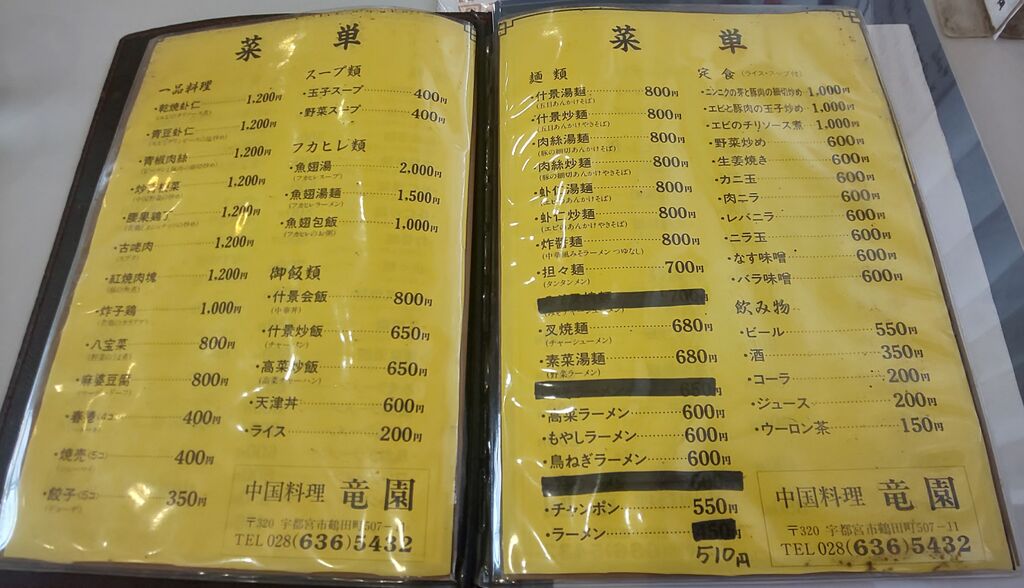 菜 単
一品料理
・乾焼蝦仁 1,200円
・青豆蝦仁 1,200円
・青椒肉絲 1,200円
1,200円
・腰果鶏丁 1,200円
・古咾肉 1,200円
・紅焼肉塊 1,200円
・炸子鶏 1,000円
・八宝菜 800円
・麻婆豆腐 800円
・春巻(4コ) 400円
・焼売(5コ) 400円
・餃子(5コ) 350円
(ギョーザ)
スープ類
・玉子スープ 400円
・野菜スープ 400円
フカヒレ類
・魚翅湯 2,000円
(フカヒレスープ)
・魚翅湯麺 1,500円
(フカヒレラーメン)
・魚翅包飯 1,000円
(フカヒレのお粥)
御飯類
・什景会飯 800円
(中華丼)
・什景炒飯 650円
(チャーハン)
・高菜炒飯 650円
(高菜チャーハン)
・天津丼 600円
・ライス 200円
中国料理 竜園
〒320 宇都宮市鶴田町507-11
TEL 028(636)5432
菜 単
麺類
・什景湯麺 800円
(五目あんかけそば)
・什景炒麺 800円
(五目あんかけやきそば)
・肉絲湯麺 800円
(豚の細切あんかけそば)
・肉絲炒麺 800円
(豚の細切あんかけやきそば)
・蝦仁湯麺 800円
(エビのあんかけそば)
・蝦仁炒麺 800円
(エビのあんかけやきそば)
・炸醤麺 800円
(中華風みそラーメンつゆなし)
・担々麺 700円
(タンタンメン)
・叉焼麺 680円
(チャーシューメン)
・素菜湯麺 680円
(野菜ラーメン)
・高菜ラーメン 600円
・もやしラーメン 600円
・鳥ねぎラーメン 600円
・チャンポン 550円
・ラーメン
510円
定食 (ライス・スープ付)
・ニンニクの芽と豚肉の細切炒め 1,000円
・エビと豚肉の玉子炒め 1,000円
・エビのチリソース煮 1,000円
・野菜炒め 600円
・生姜焼き 600円
・カニ玉 600円
・肉ニラ 600円
・レバニラ 600円
・ニラ玉 600円
・なす味噌 600円
・バラ味噌 600円
飲み物
・ビール 550円
・酒 350円
・コーラ 200円
・ジュース 200円
・ウーロン茶 150円
中国料理 竜園
〒320 宇都宮市鶴田町507-11
TEL 028(636)5432